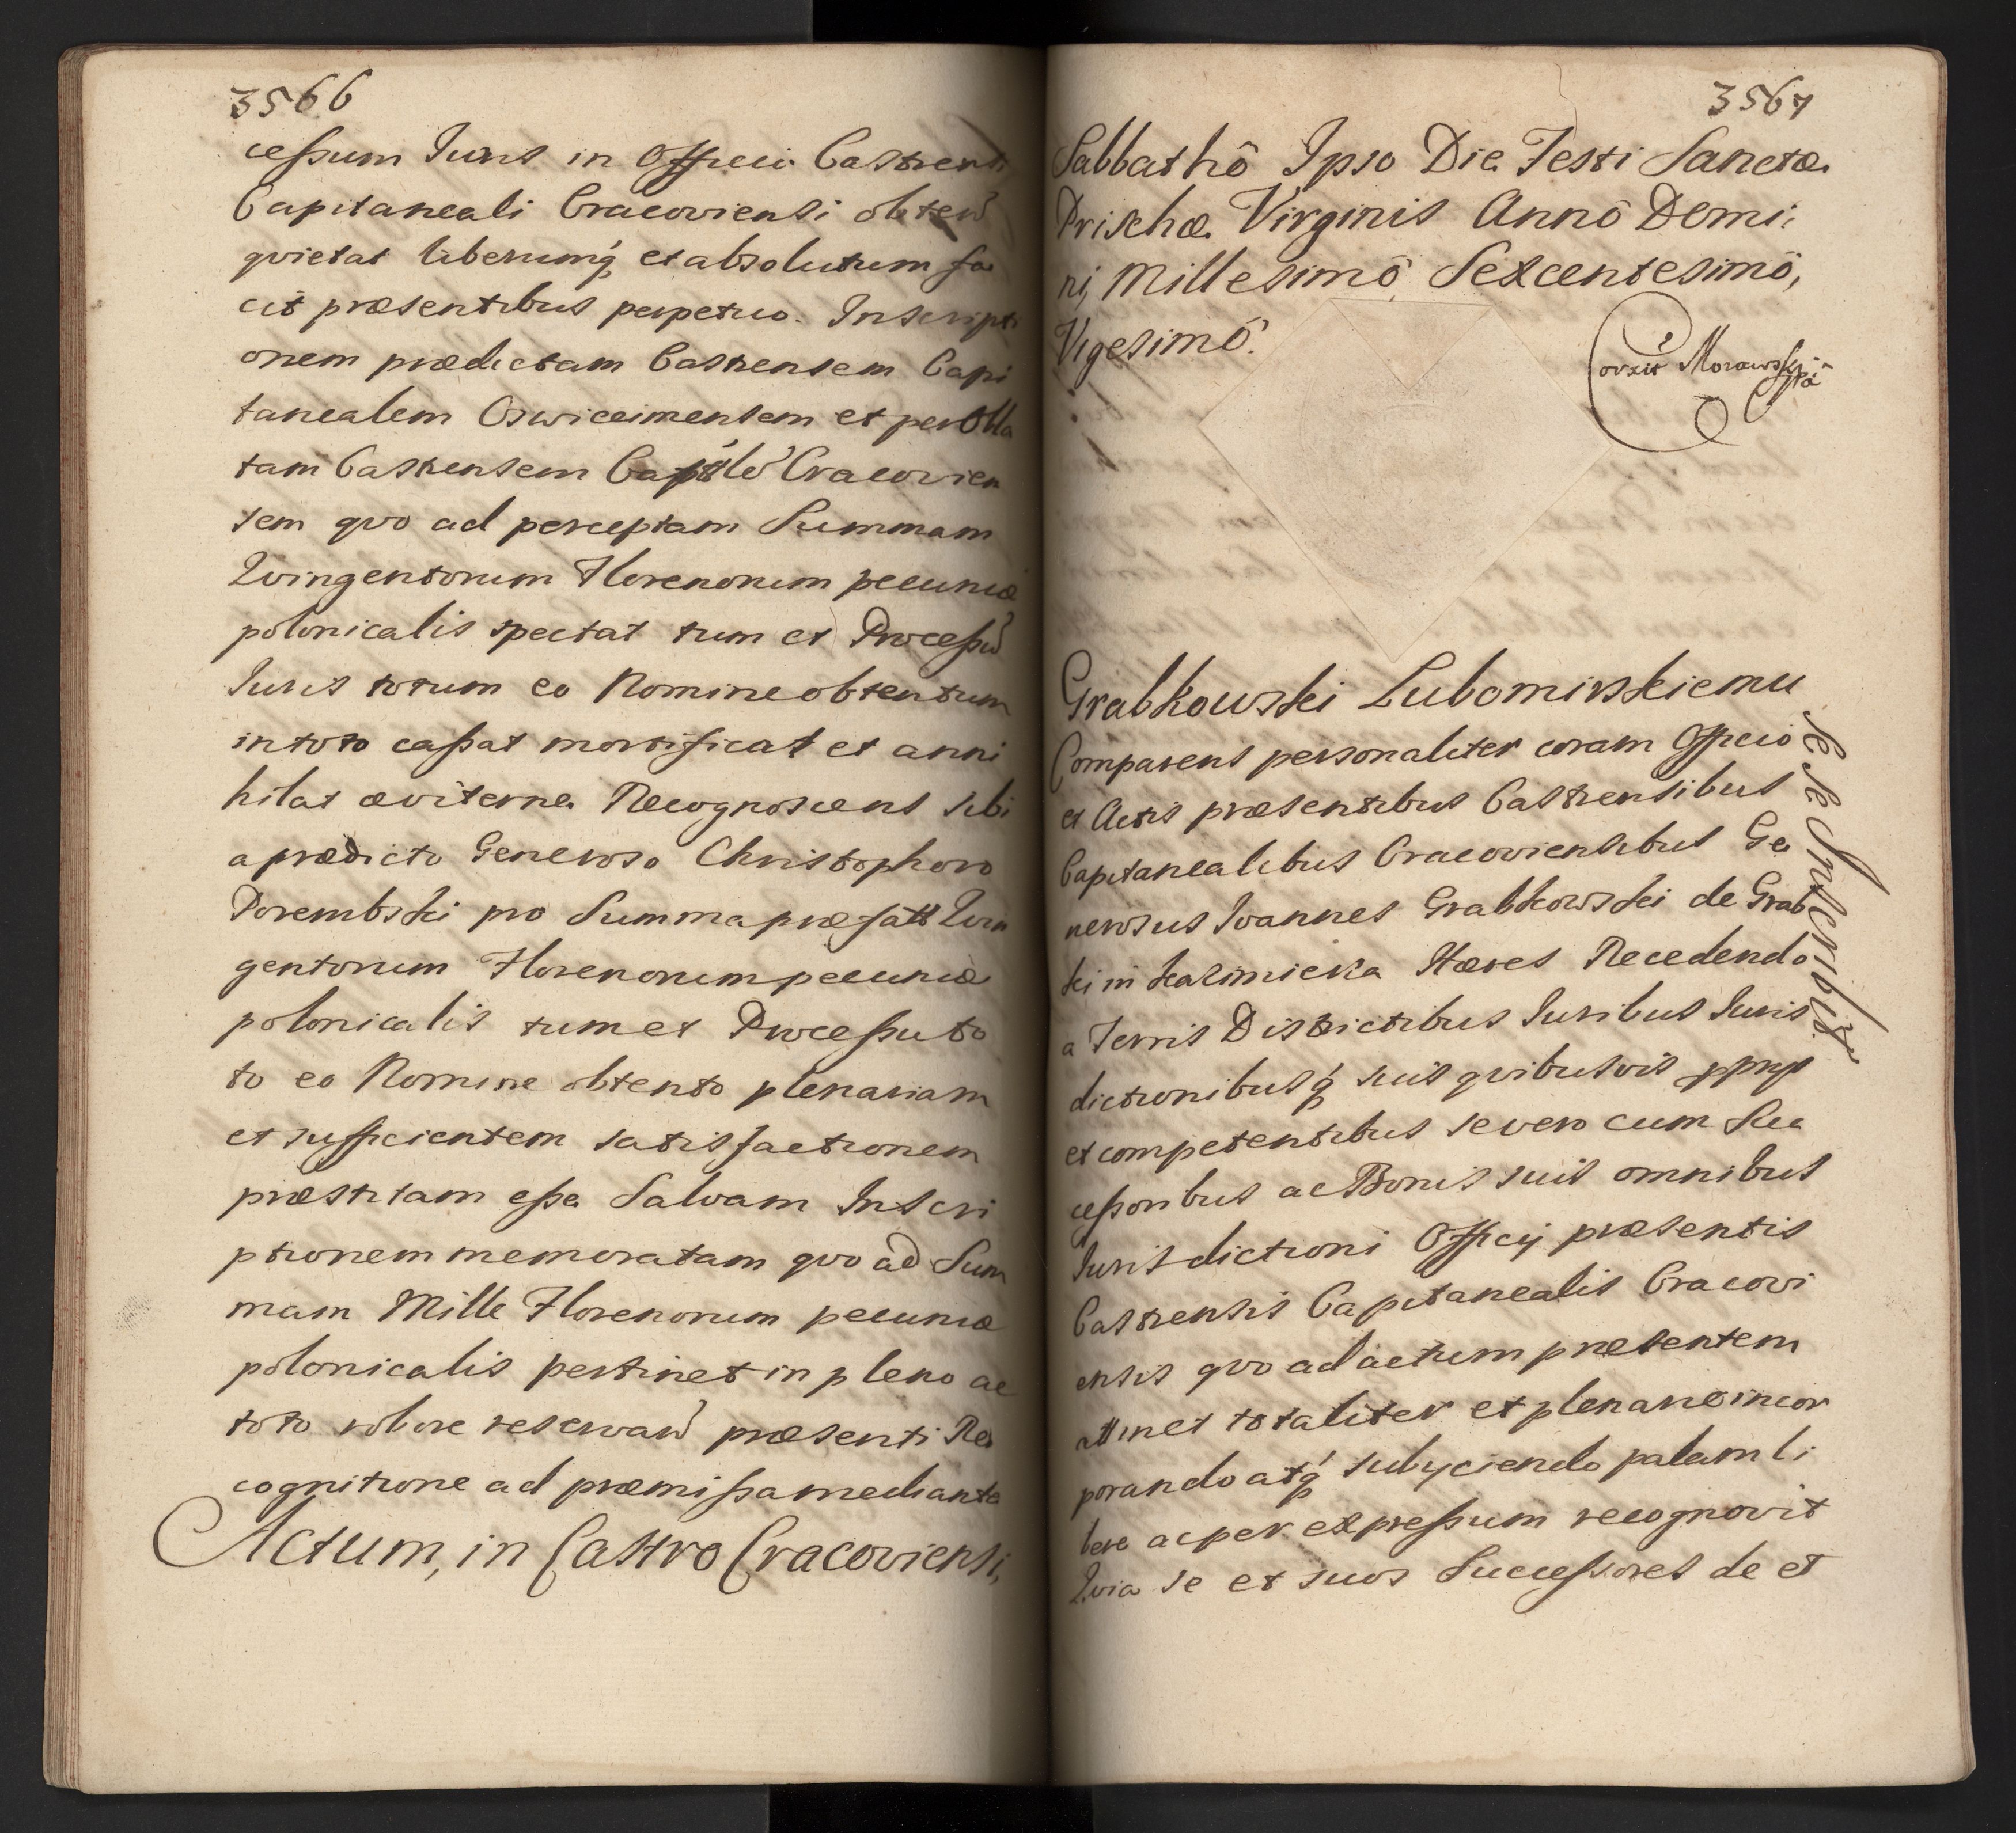 3566
ceßum Iuris in Officio Castrensi
Capitaneali Cracoviensi obten
qvietat liberumq et absolutum fa
cit præsentibus perpetuo. Inscripti
onem prædictam Castrensem Capi
tanealem Oswiecimensem et per Obla
tam Castrensem Cracovien
sem qvo ad perceptam Summam
Qvingentorum Florenorum pecuniæ
polonicalis spectat tum et Proceßũ
Iuris totum eo Nomine obtentum
in toto caßat mortificat et anni
hilat æviterne Recognoscens sibi
a prædicto Generoso Christophoro
Porembski pro Summa præfata Qvin
gentorum Florenorum pecuniæ
polonicalis tum et Proceßu to
to eo Nomine obtento plenariam
et sufficientem satisfactionem
præstitam eße Salvam Inscri
ptionem memoratam qvo ad Sum
mam Mille Florenorum pecuniæ
polonicalis pertinet in pleno ac
toto robore reservan præsenti Re
cognitione ad præmißa mediante
Actum, in Castro Cracoviensi,
3567
Sabbathô Ipso Die Festi Sanctæ
Prischæ Virginis Annô Domi:
ni, Millesimô Sexcentesimô,
Vigesimô.
Corrxit Morawski
Grabkowski Lubomirskiemu
Se Se Inscribit
Comparens personaliter coram Officio
et Actis præsentibus Castrensibus
Capitanealibus Cracoviensibus Ge
nerosus Ioannes Grabkowski de Grab
ki in Kazimierza Hæres Recedendo
a Terris Districtibus Iuribus Iuris
dictionibusq suis qvibusvis
et competentibus se vero cum Suc
ceßoribus ac Bonis suis omnibus
Iurisdictioni Officij præsentis
Castrensis Capitanealis Cracovi
ensis qvo ad actum præsentem
attinet totaliter et plenarie incor
porando atq subijciendo palam li
bere ac per expreßum recognovit
Qvia se et suos Succeßores de et